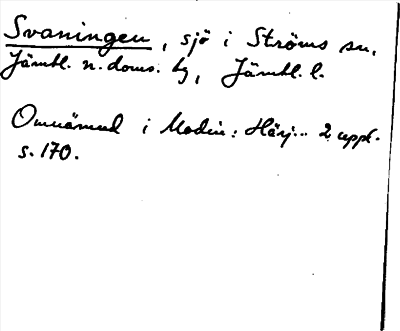 Svaningen, sjö i Ströms sn,
Jämtl. n. doms. bg, Jämtl. l.
Omnämnd i Modin: Härj... 2 uppl.
s. 170.